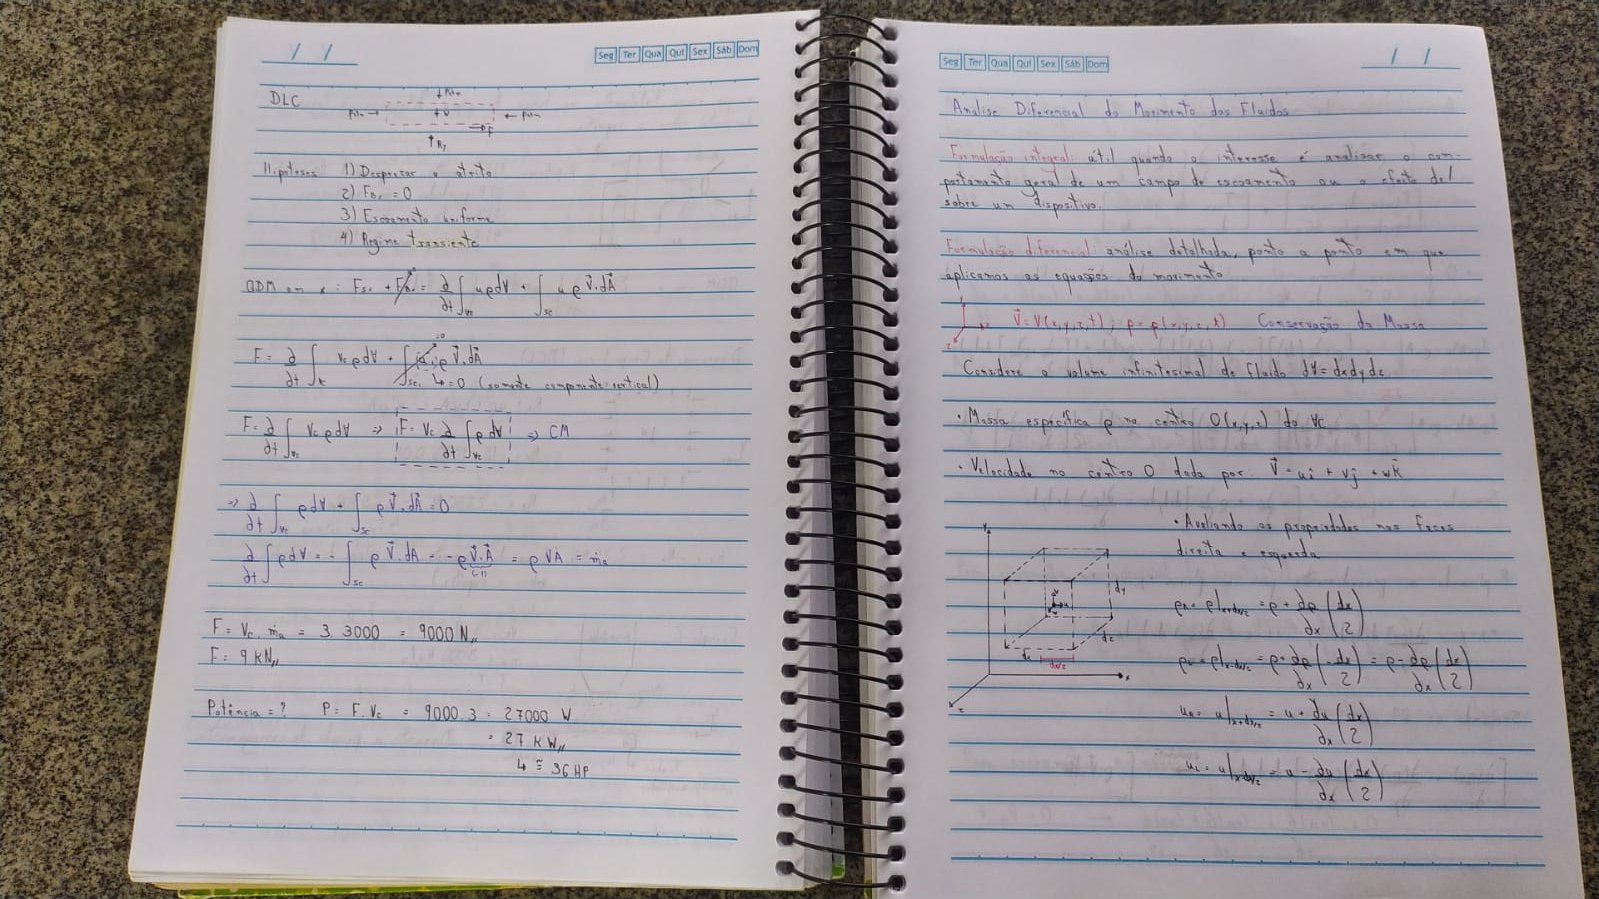 Seg Ter Qua Qui Sex Sáb Dom
DLC
Patm
Patm → ↓ V ← Patm
→ F
↑ Ry
Hipóteses 1) Desprezar o atrito
2) FBx = 0
3) Escoamento uniforme
4) Regime transiente
QDM em x : FSx + FBx = ∂/∂t ∫VC uρdV + ∫SC uρ V⃗.dA⃗
F = ∂/∂t ∫VC Vc ρdV + ∫SC u ρ V⃗.dA⃗ = 0
↳ = 0 (somente componente vertical)
F = ∂/∂t ∫VC Vc ρdV ⇒ F = Vc ∂/∂t ∫VC ρdV ⇒ CM
⇒ ∂/∂t ∫VC ρdV + ∫SC ρV⃗.dA⃗ = 0
∂/∂t ∫ρdV = - ∫SC ρV⃗.dA = -ρV⃗.A⃗ = ρVA = ṁa
(-1)
F = Vc. ṁa = 3. 3000 = 9000 N//
F = 9 kN//
Potência = ? P = F.Vc = 9000.3 = 27000 W
= 27 KW//
↳ ≅ 36 HP
Seg Ter Qua Qui Sex Sáb Dom
Analise Diferencial do Movimento dos Fluidos
Formulação integral: útil quando o interesse é analisar o com-
portamento geral de um campo de escoamento ou o efeito del
sobre um dispositivo.
Formulação diferencial: análise detalhada, ponto a ponto em que
aplicamos as equações do movimento
V⃗ = V(x,y,z,t) ; ρ = ρ(x,y,z,t) Conservação da Massa
Considere o volume infinitesimal de fluido dV = dxdydz
• Massa específica ρ no centro O(x,y,z) do VC
• Velocidade no centro O dada por: V⃗ = uî + vĵ + wk̂
• Avaliando as propriedades nas faces
direita e esquerda
y
dy
dz
dx
dx/2
x
z
ρR = ρ|x+dx/2 = ρ + ∂ρ/∂x (dx/2)
ρL = ρ|x-dx/2 = ρ + ∂ρ/∂x (-dx/2) = ρ - ∂ρ/∂x (dx/2)
uR = u|x+dx/2 = u + ∂u/∂x (dx/2)
uL = u|x-dx/2 = u - ∂u/∂x (dx/2)